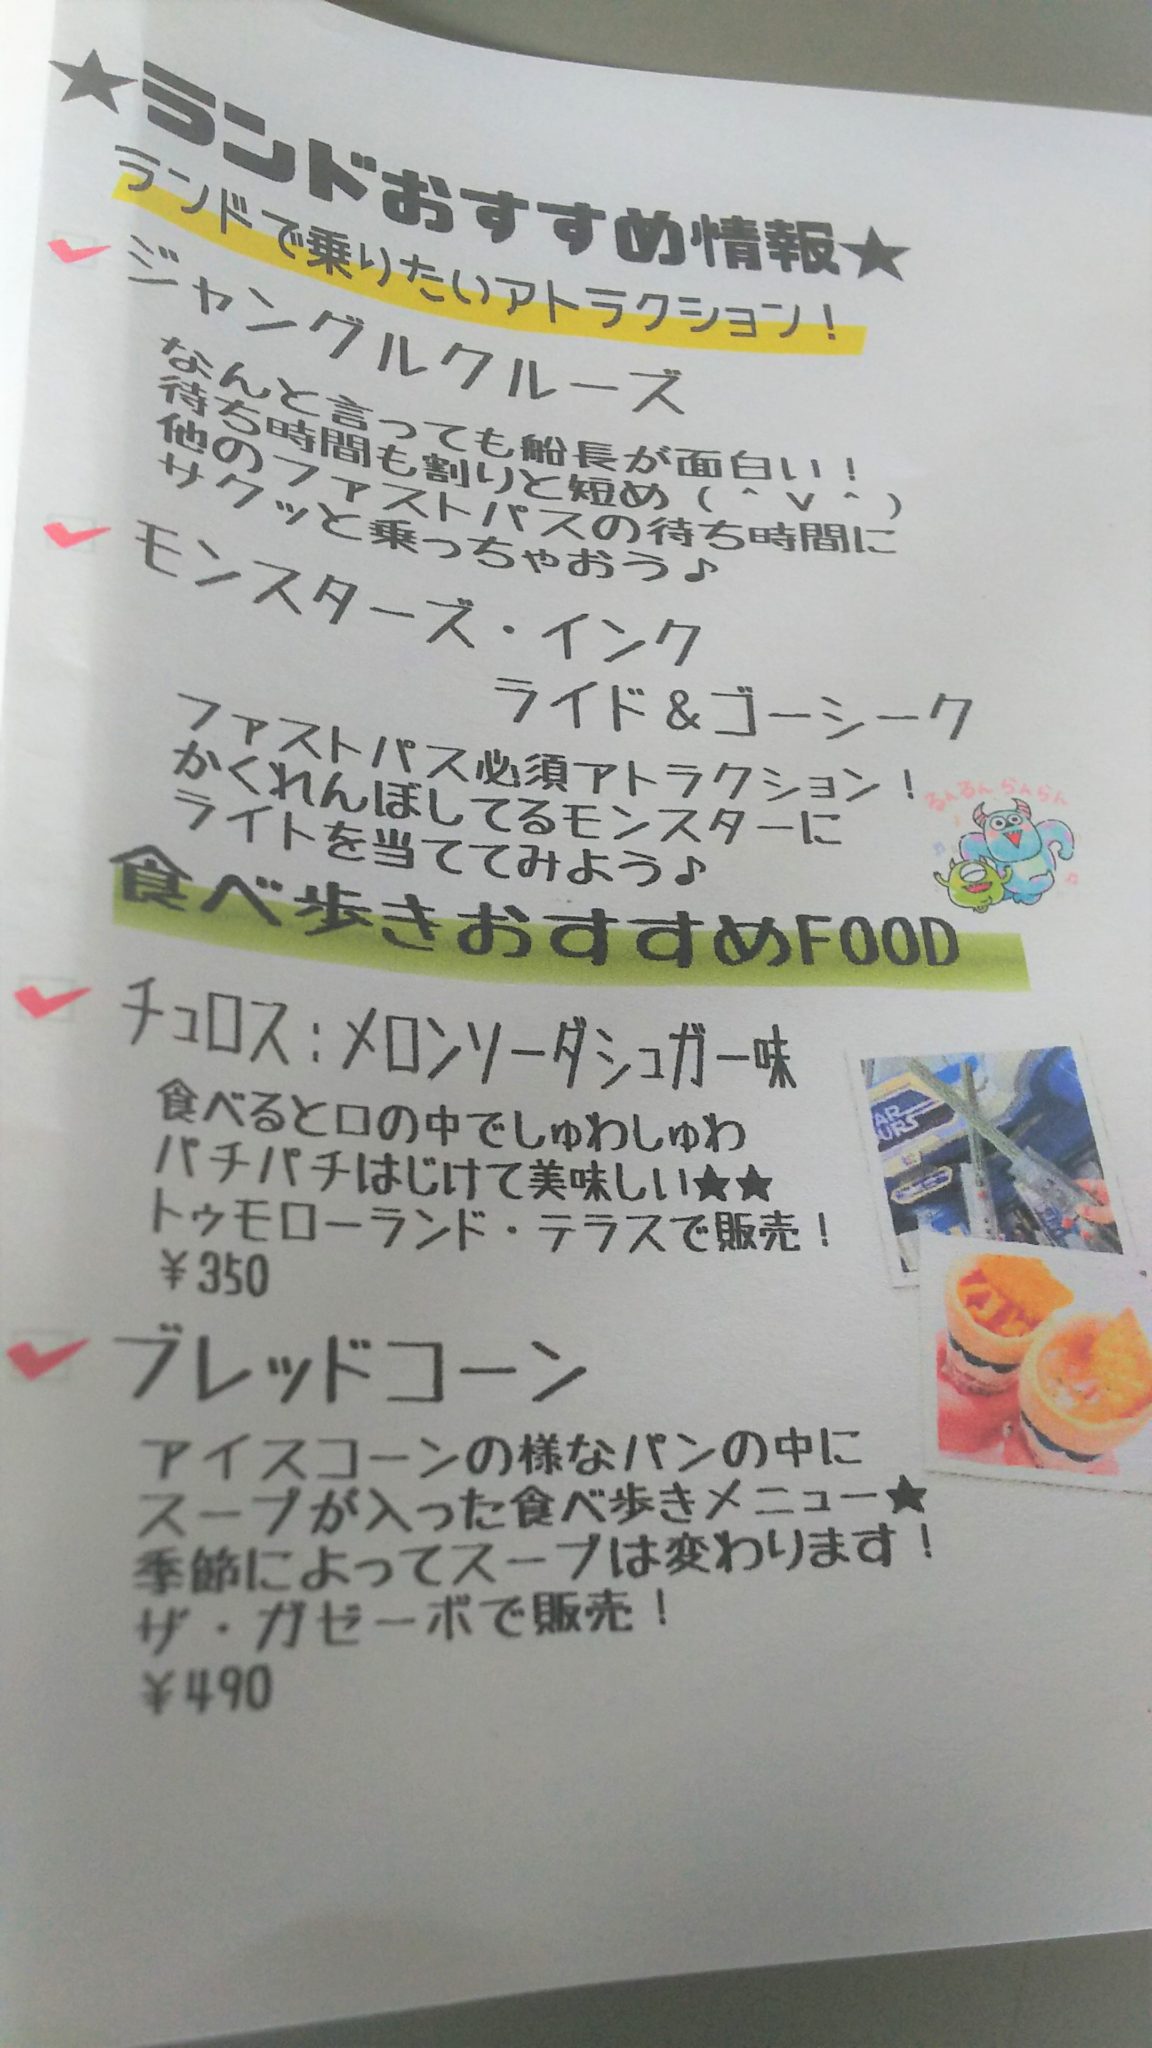 ★ランドおすすめ情報★
ランドで乗りたいアトラクション！
ジャングルクルーズ
なんと言っても船長が面白い！
待ち時間も割りと短め（＾∨＾）
他のファストパスの待ち時間に
サクッと乗っちゃおう♪
モンスターズ・インク
ライド＆ゴーシーク
ファストパス必須アトラクション！
かくれんぼしてるモンスターに
ライトを当ててみよう♪
るんるん らんらん
食べ歩きおすすめFOOD
チュロス：メロンソーダシュガー味
食べると口の中でしゅわしゅわ
パチパチはじけて美味しい★★
トゥモローランド・テラスで販売！
￥350
ブレッドコーン
アイスコーンの様なパンの中に
スープが入った食べ歩きメニュー★
季節によってスープは変わります！
ザ・ガゼーボで販売！
￥490